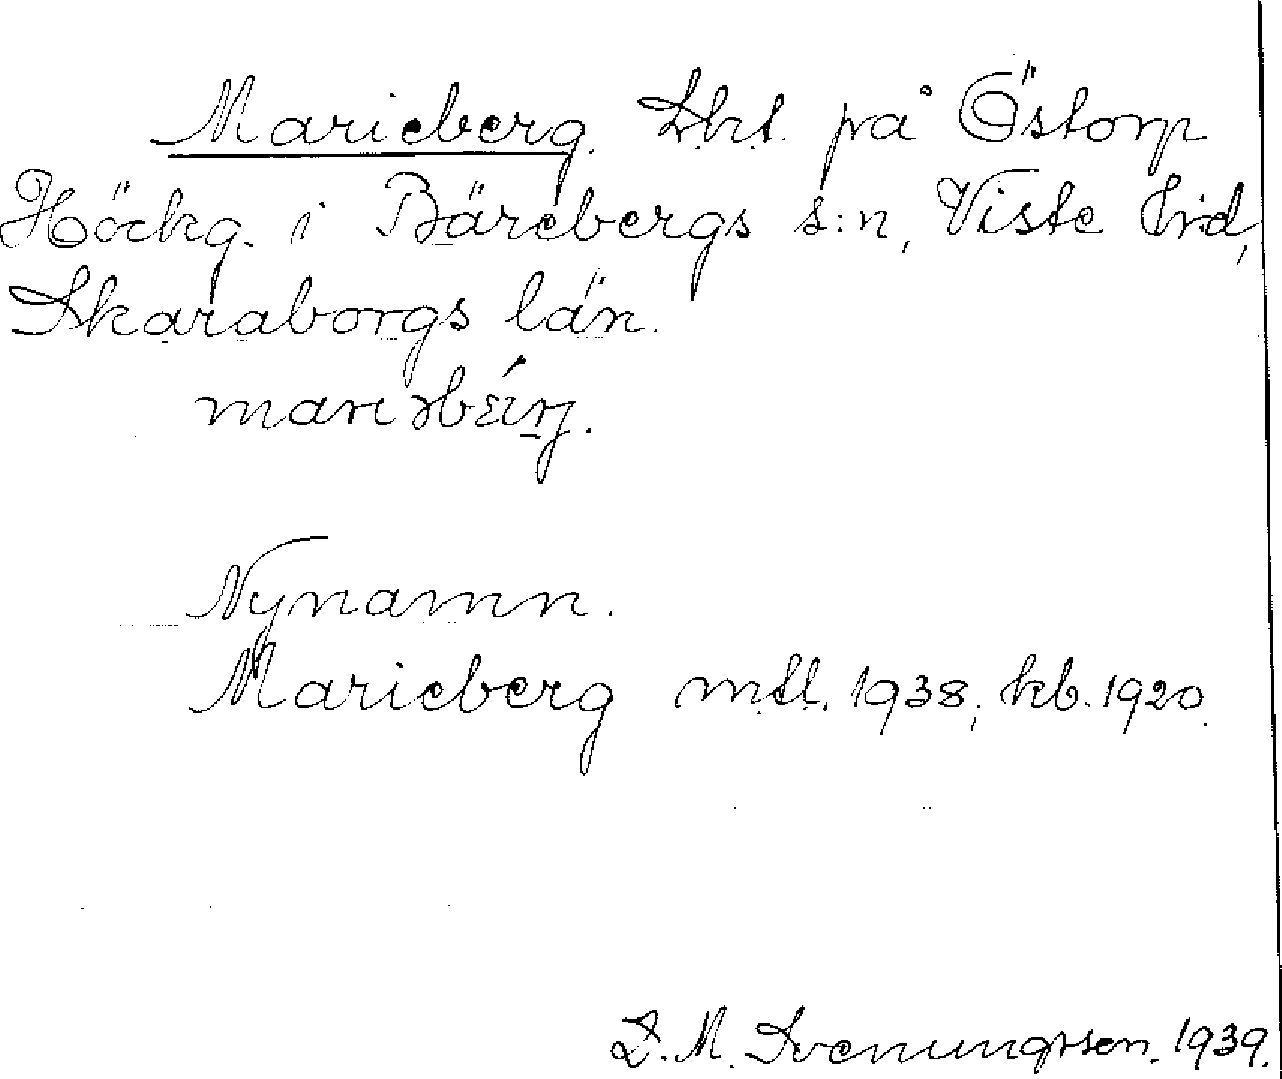 Marieberg. Lht. på Östorp
Höckg. i Bärebergs s:n, Viste hd,
Skaraborgs län.
Nynamn.
Marieberg mtl. 1938, kb. 1920.
D. M. Svenungsson. 1939.